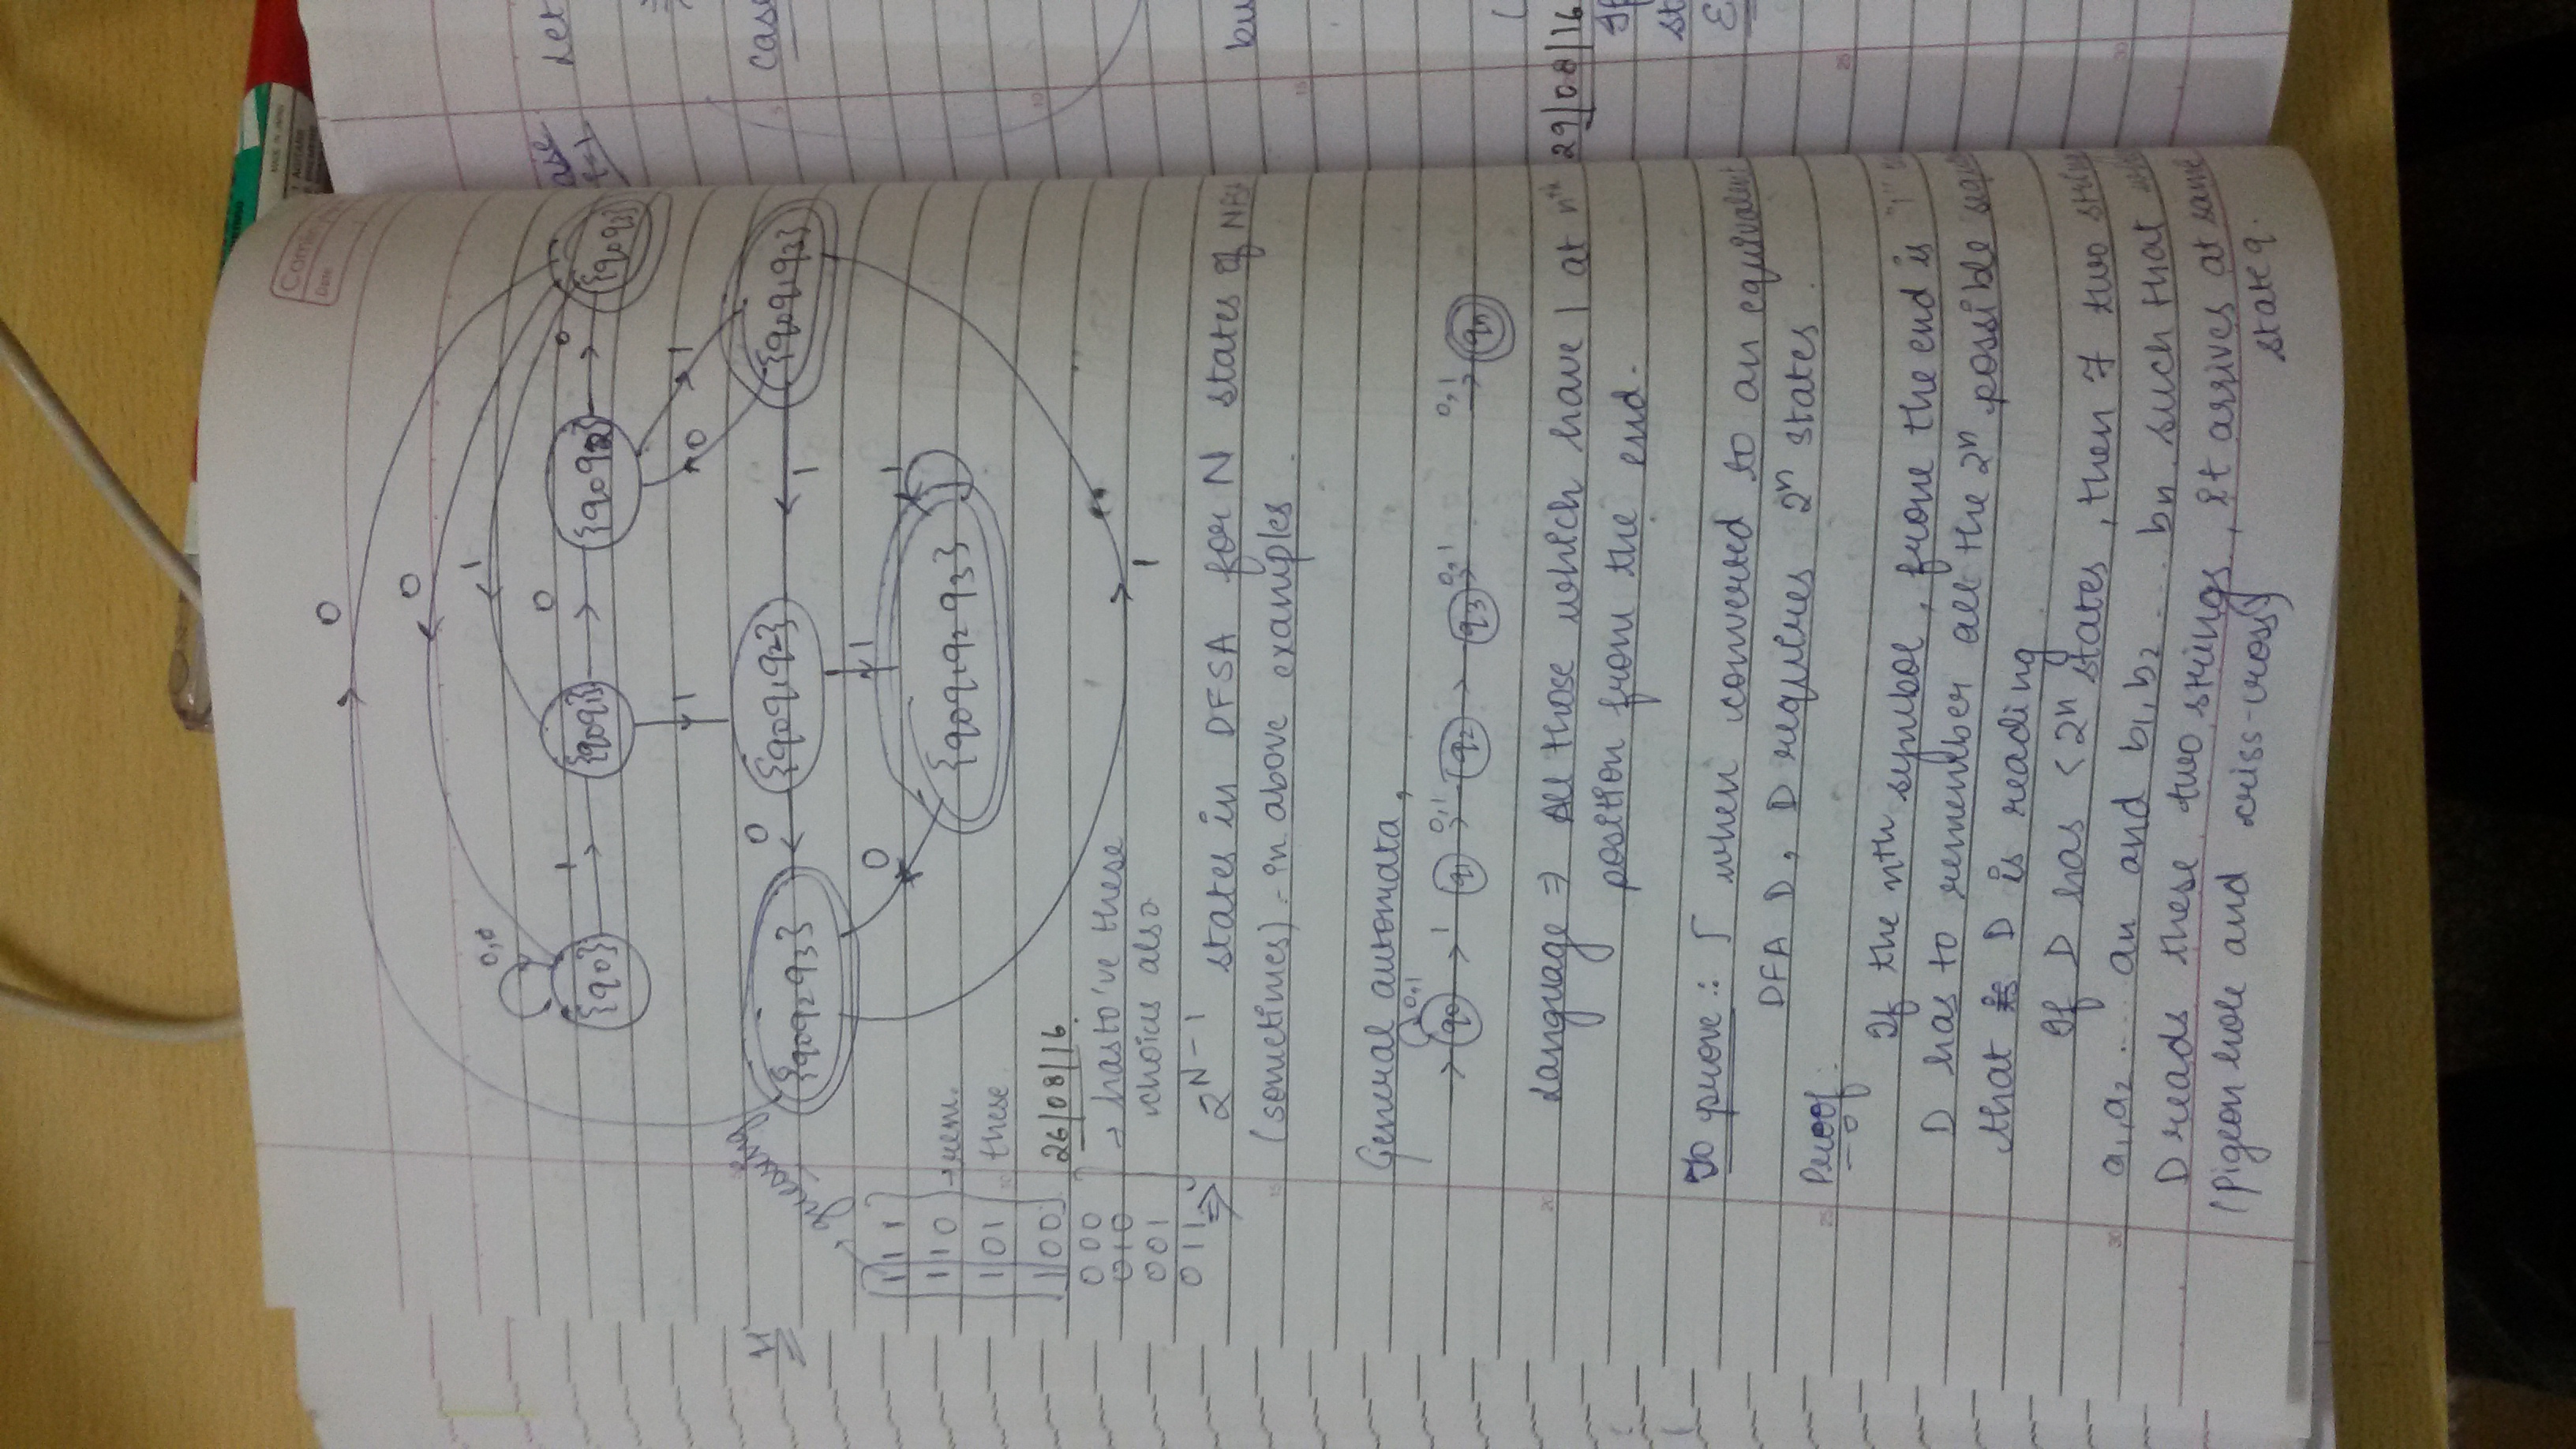 0
0
1
0,0
1
0
0
{q0}
{q0q1}
{q0q2}
{q0q3}
1
0
1
guessing
{q0q2q3}
0
{q0q1q2}
1
{q0q1q3}
0
1
1
{q0q1q2q3}
1 1 1
1 1 0 → rem.
1 0 1 these
1 0 0
26/08/16
0 0 0
0 1 0 → has to've these
0 0 1 choices also
0 1 1
1
⇒ 2^N-1 states in DFSA for N states of NFSA
(sometimes) - in above examples.
General automata,
0,1
→ q0 → 1 q1 0,1 q2 → q3 0,1 0,1 qn
Language ⇒ All those which have 1 at nth
position from the end.
To prove :: when converted to an equivalent
DFA D, D requires 2^n states.
Proof:
If the nth symbol, from the end is "1"
D has to remember all the 2^n possible
that is D is reading
If D has < 2^n states, then two
a1,a2 .... an and b1,b2 .... bn such that
D reads these two strings, it arrives at same
(pigeon hole and criss-cross) state q.
MADE IN JAPAN
Date
Let
case
29/08/16
5
10
15
20
25
30